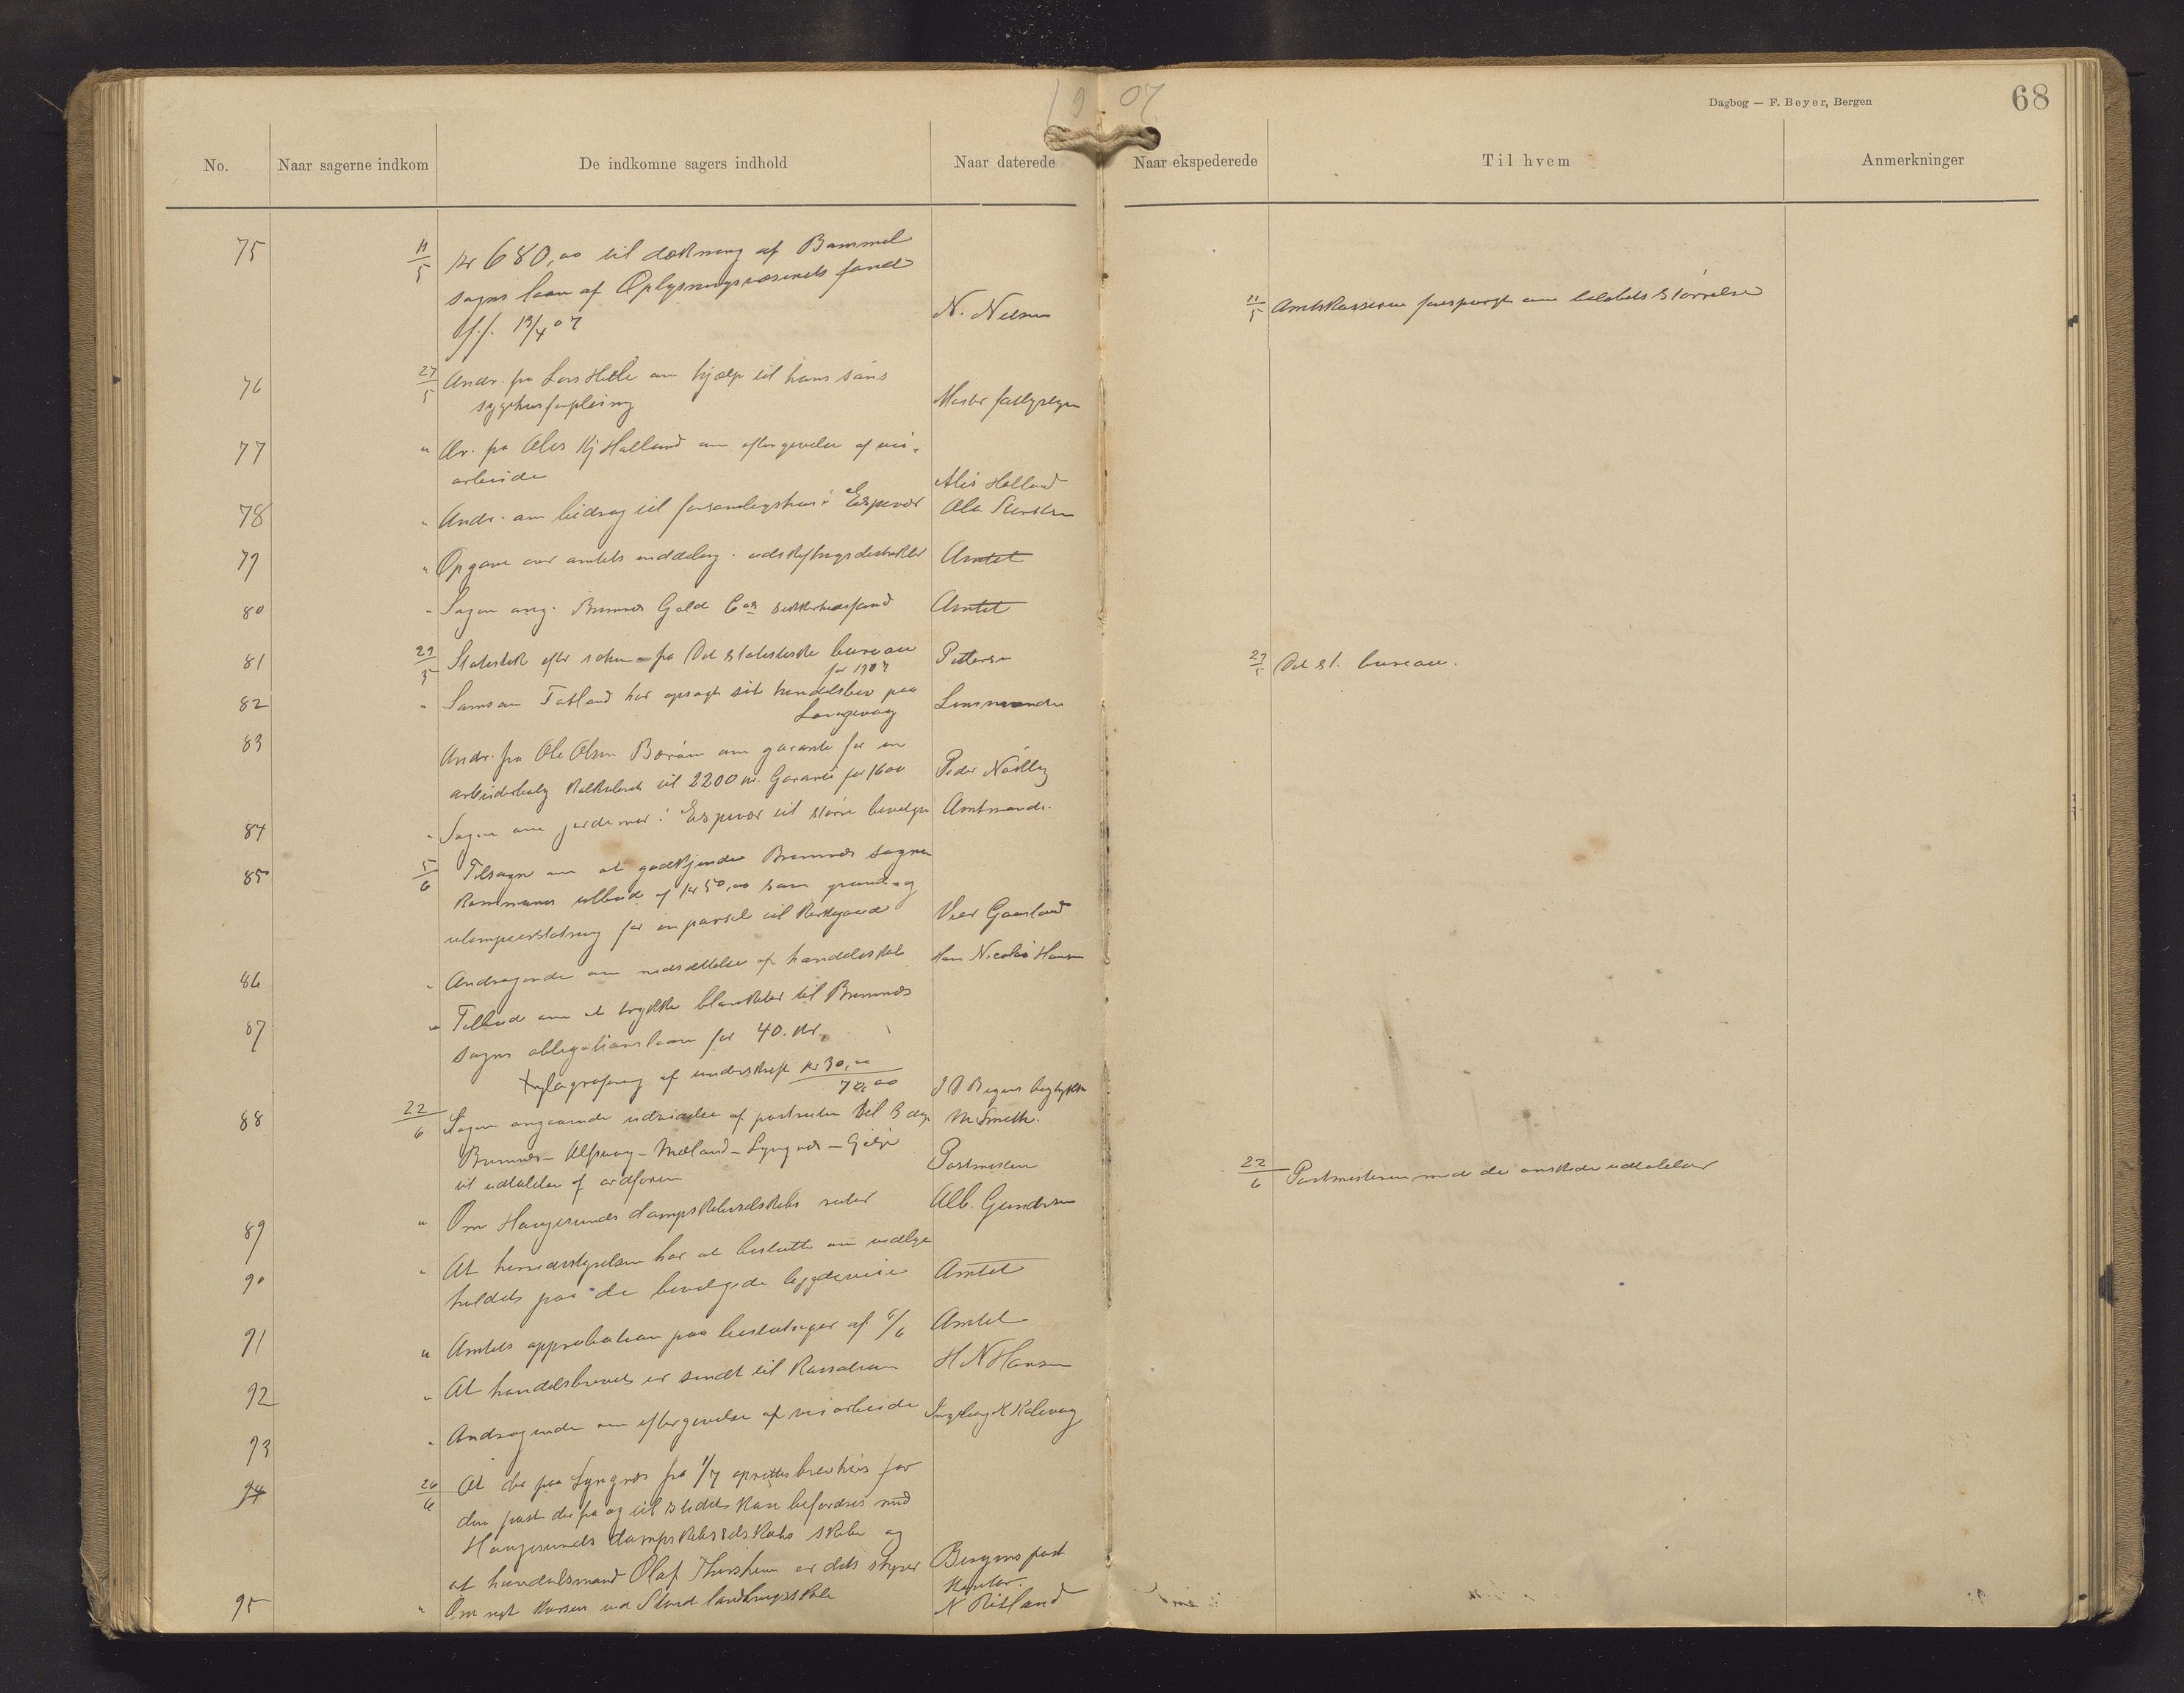 1907
Dagbog — F. Beyer, Bergen
68
No.
Naar sagerne indkom
De indkomne sagers indhold
Naar daterede
Naar ekspederede
Til hvem
Anmerkninger
75 11/5 Kr 680,00 til dækning af Bømmel
sogns laan af Oplysningsvæsenets fond
19/4 07 N. Nilsen
11/5 Amtskassereren forespurgt om beløbets størrelse
76 27/5 Andr. fra Lars Hille om hjælp til hans søns
sygehusforpleining
77 " An. fra Alis Kj Halland om eftergivelse af vei-
arbeide Alis Halland
78 " Andr. om bidrag til forsamlingshus i Espevær
79 " Opgave over amtets inddeling i udskiftningsdistrikter Amtet
80 " Sagen ang. Bremnes Gold Co's sikkerhedsfond Amtet
81 29/5 Statistik efter schema fra Det statistiske bureau
for 1907 Pettersen
29/5 Det st. bureau.
82 " Samson Totland har opsagt sit handelsbrev paa
Langevaag Lensmanden
83 Andr. fra Ole Olsen Børøen om garanti for en
arbeiderbolig kalkuleret til 2200 kr. Garanti for 1600
84 " Sagen om jordemor i Espevær til større bevilgn Amtmanden
85 5/6 Tilsagn om at godkjende Bremnes sogne
kommunes tilbud af kr 50,00 som grund og
ulempeerstatning for en parsel til kirkegaard
86 " Andragende om nedsættelse af handelsskat Hans Nicolai Hansen
87 " Tilbud om at trykke blanketter til Bremnes
sogns obligationslaan for 40. kr.
+ xylografering af underskrift kr 30,00
70,00
88 22/6 Sagen angaaende udvidelse af postruten til 3 dage
Bremnes - Alfsvaag - Mæland - Lyngnes - Gilje
til udtalelse af ordføren Postmesteren
22/6 Postmesteren med de ønskede udtalelser
89 " Om Haugesunds dampskibsselskabs ruter Alb. Gundersen
90 " At herredsstyrelsen har at beslutte om vedlige
holdet paa de bevilgede bygdeveie Amtet
91 " Amtets approbation paa beslutninger af 6/6 Amtet
92 " At handelsbrevet er sendt til kassereren H N Hansen
93 " Andragende om eftergivelse af veiarbeide
94 26/6 At der paa Lyngnes fra 1/7 oprettes brevhus for
den post der fra og til stedet kan befordres med
Haugesunds dampskibsselskabs skibe og
at handelsmand Olaf Thorsheim er dets styrer Bergens post
kontor.
95 " Om nyt kursus ved Stend landbrugsskole